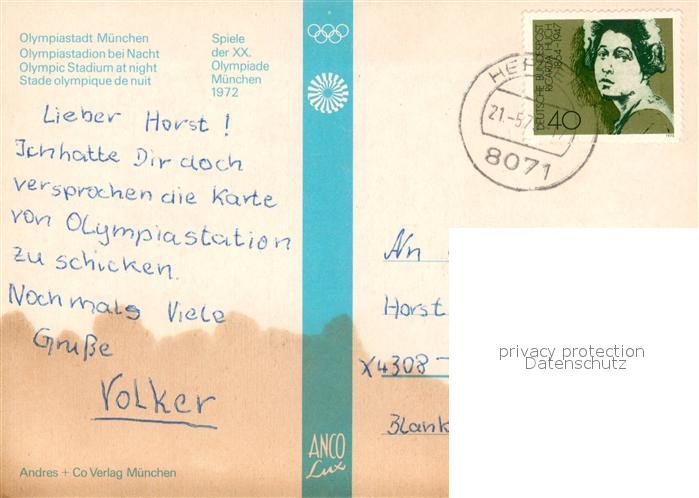 Olympiastadt München
Olympiastadion bei Nacht
Olympic Stadium at night
Stade olympique de nuit
Spiele
der XX.
Olympiade
München
1972
Lieber Horst!
Ich hatte Dir doch
versprochen die Karte
von Olympiastation
zu schicken.
Nochmals Viele
Grüße
Volker
Andres + Co Verlag München
ANCO
Lux
DEUTSCHE BUNDESPOST
RICARDA HUCH
1864-1947
40
21-5.7
8071
An
Horst
X4308-
Blank
privacy protection
Datenschutz